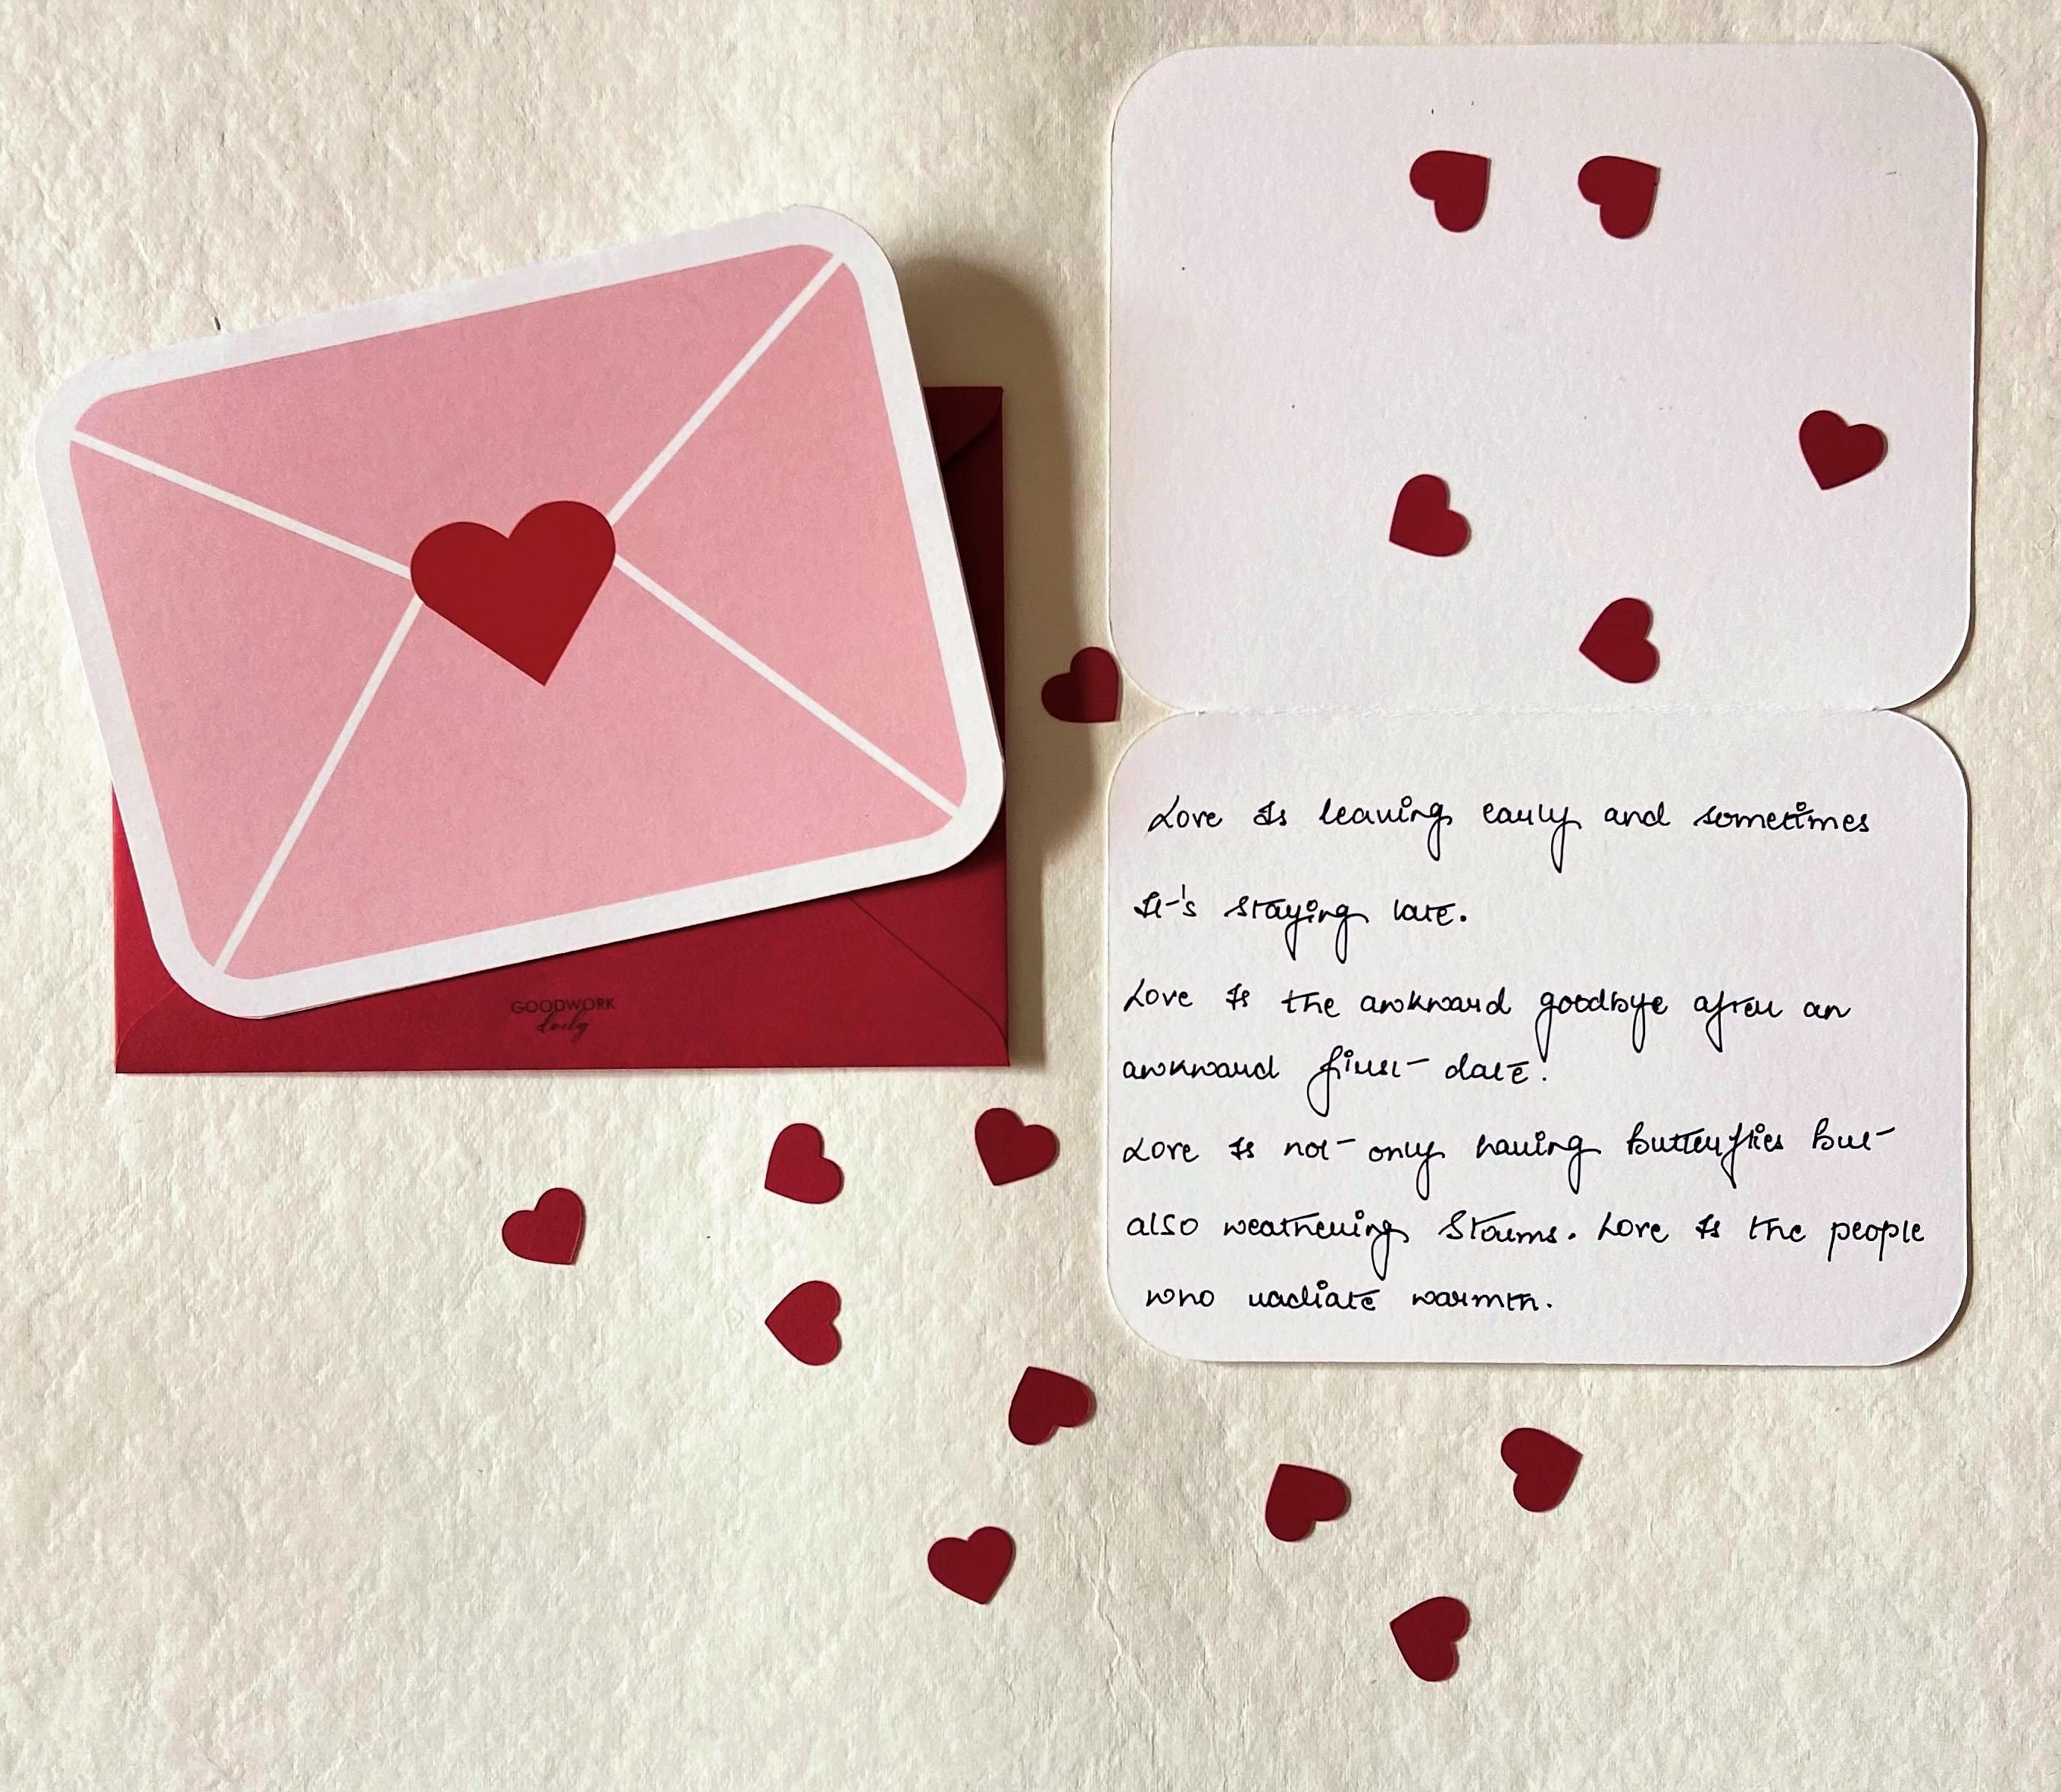 GOODWORK
daily
Love Is leaving early and sometimes
It's staying late.
Love Is the awkward goodbye after an
awkward first date!
Love Is not only having butterflies but
also weathering Storms. Love Is the people
who radiate warmth.